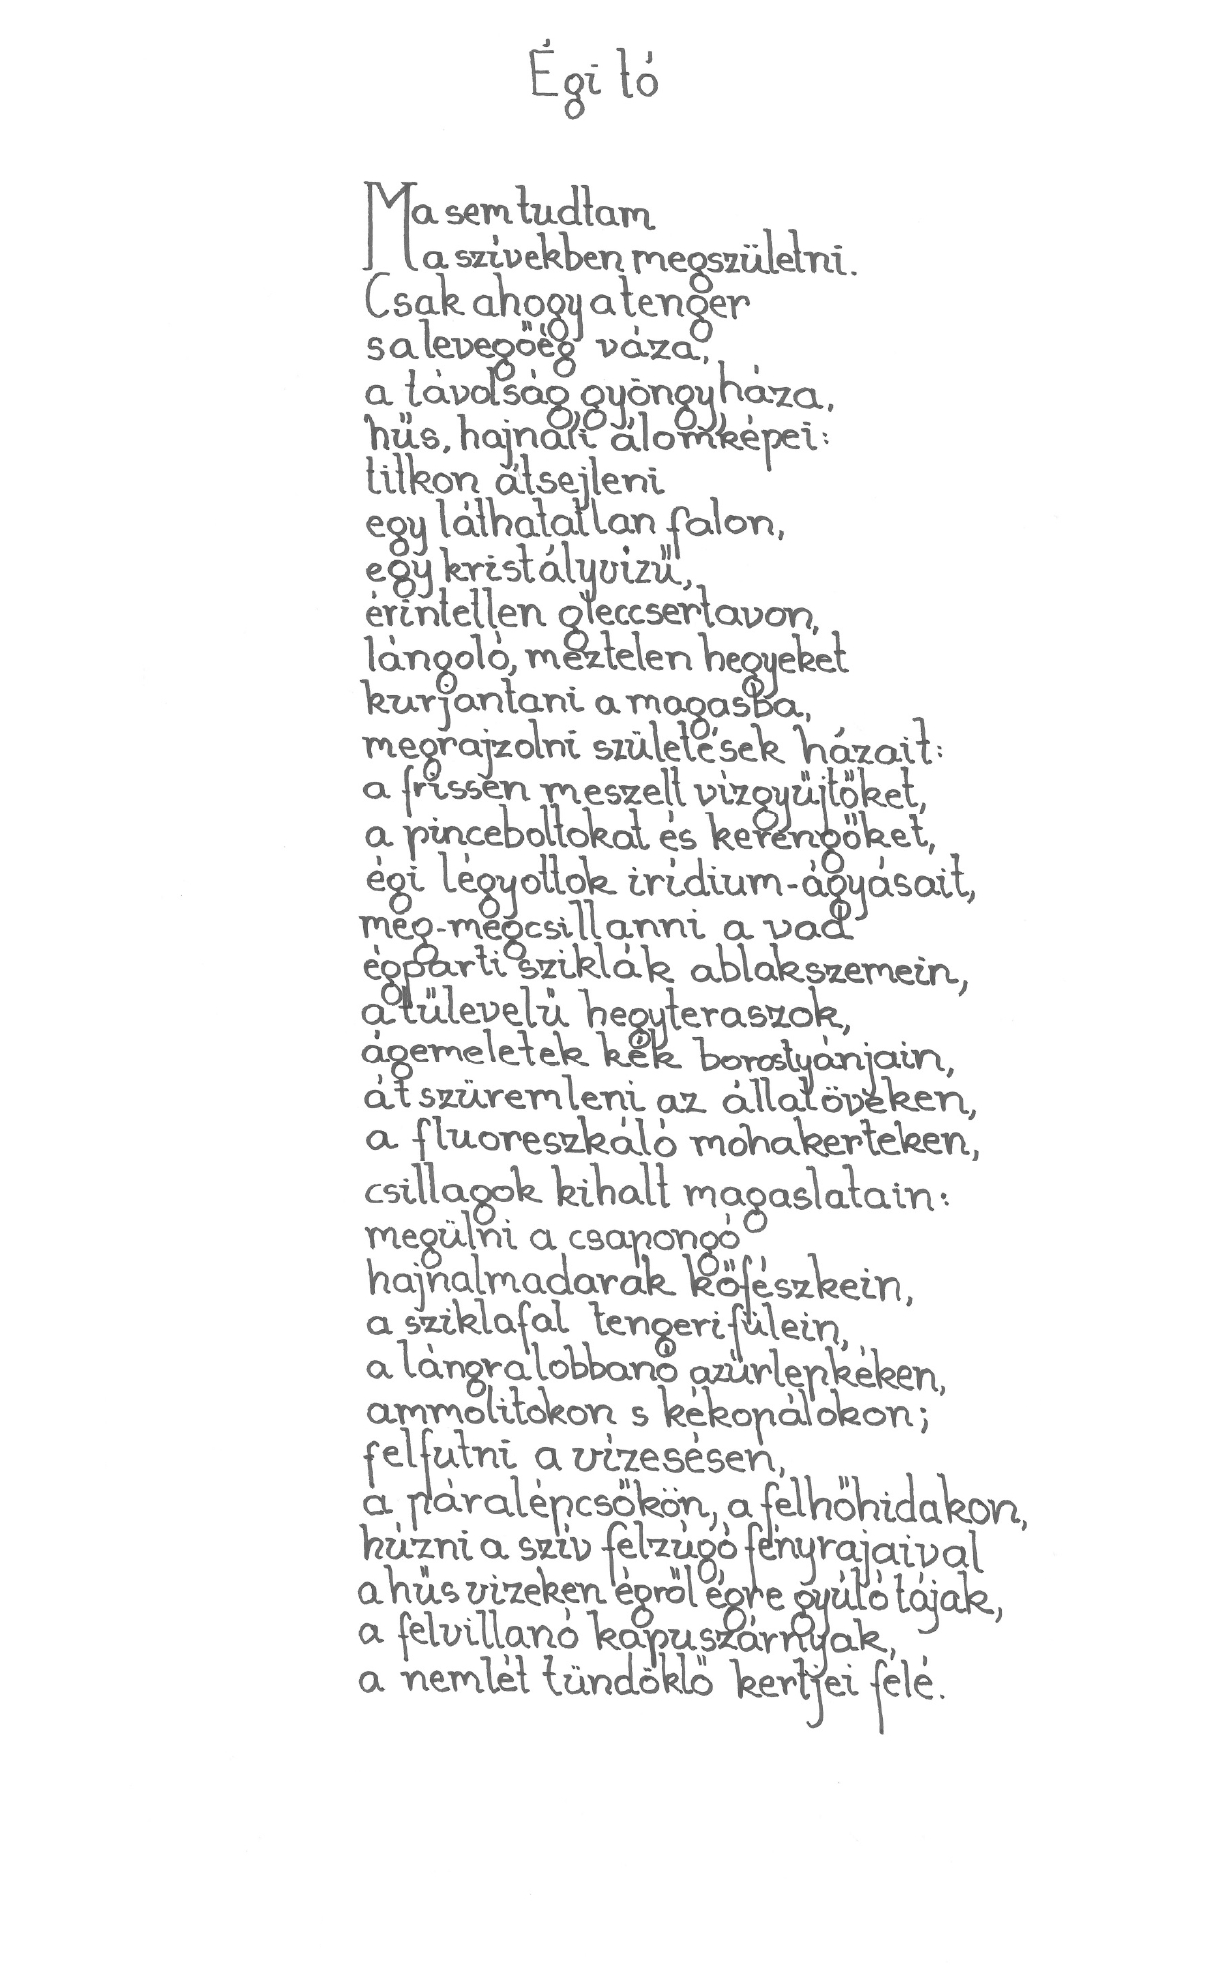 Égi tó
Ma sem tudtam
a szívekben megszületni.
Csak ahogy a tenger
s a levegőég váza,
a távolság gyöngyháza,
hűs, hajnali álomképei:
titkon átsejleni
egy láthatatlan falon,
egy kristályvizű,
érintetlen gleccsertavon,
lángoló, meztelen hegyeket
kurjantani a magasba,
megrajzolni születések házait:
a frissen meszelt vízgyűjtőket,
a pinceboltokat és kerengőket,
égi légyottok irídium-ágyásait,
meg-megcsillanni a vad
égparti sziklák ablakszemein,
a tűlevelű hegyteraszok,
ágemeletek kék borostyánjain,
átszüremleni az állatöveken,
a fluoreszkáló mohakerteken,
csillagok kihalt magaslatain:
megülni a csapongó
hajnalmadarak kőfészkein,
a sziklafal tengerifülein,
a lángralobbanó azúrlepkéken,
ammolitokon s kékopálokon;
felfutni a vízesésen,
a páralépcsőkön, a felhőhidakon,
húzni a szív felzúgó fényrajaival
a hűs vizeken égről égre gyúló tájak,
a felvillanó kapuszárnyak,
a nemlét tündöklő kertjei felé.